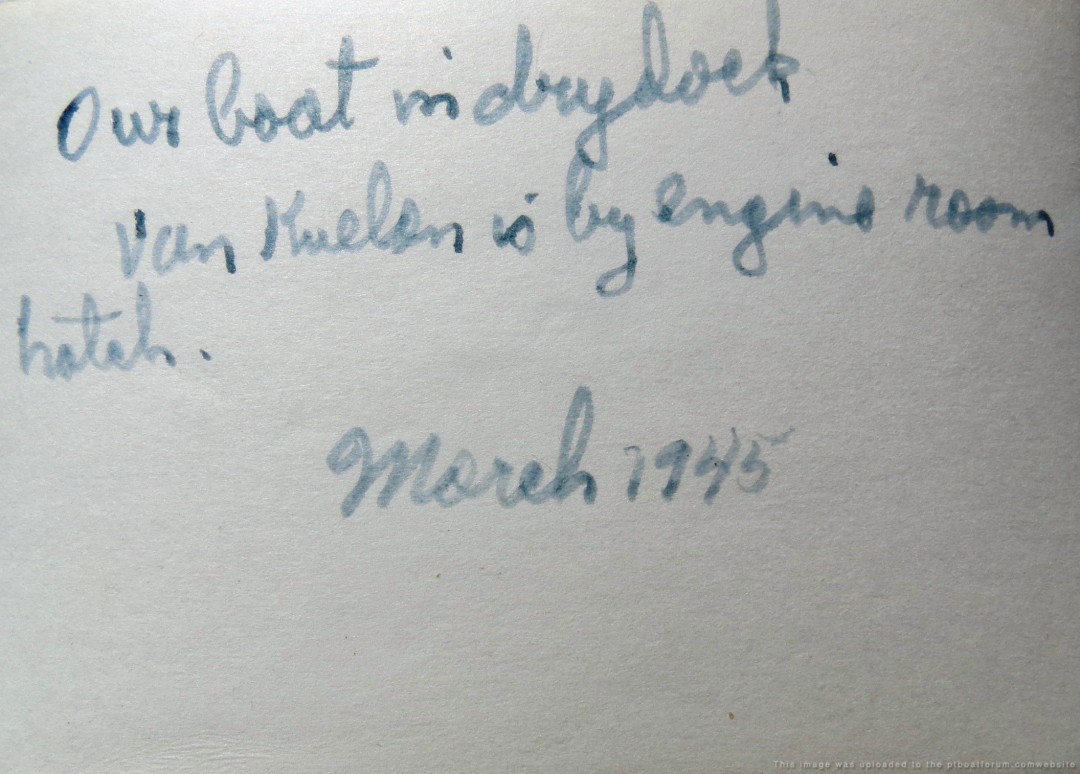 Our boat in drydock
Van Kuelen is by engine room
hatch.
March 1945
This image was uploaded to the ptboatforum.comwebsite